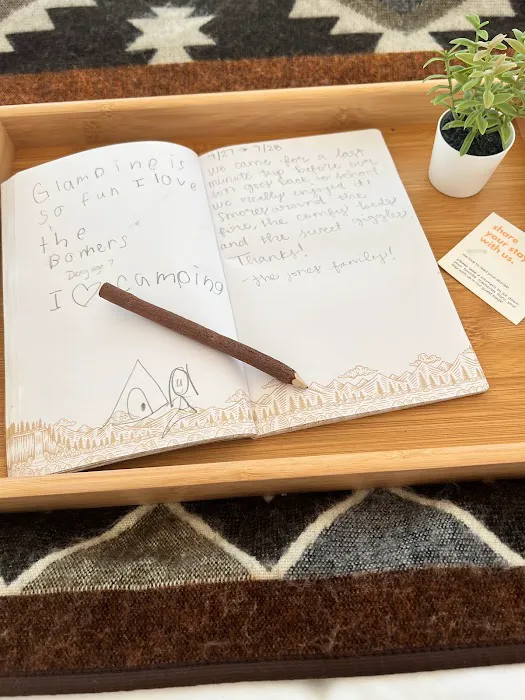 Glamping is
so fun I love
the
Bomers
I ♡ camping
7/27 → 7/28
we came for a last
minute trip before our
son goes back to school
we really enjoy'd it!
Smores around the
fire, the comfy beds
and the sweet giggles,
Thanks!
- The Jones family!
share
your stay
with us.